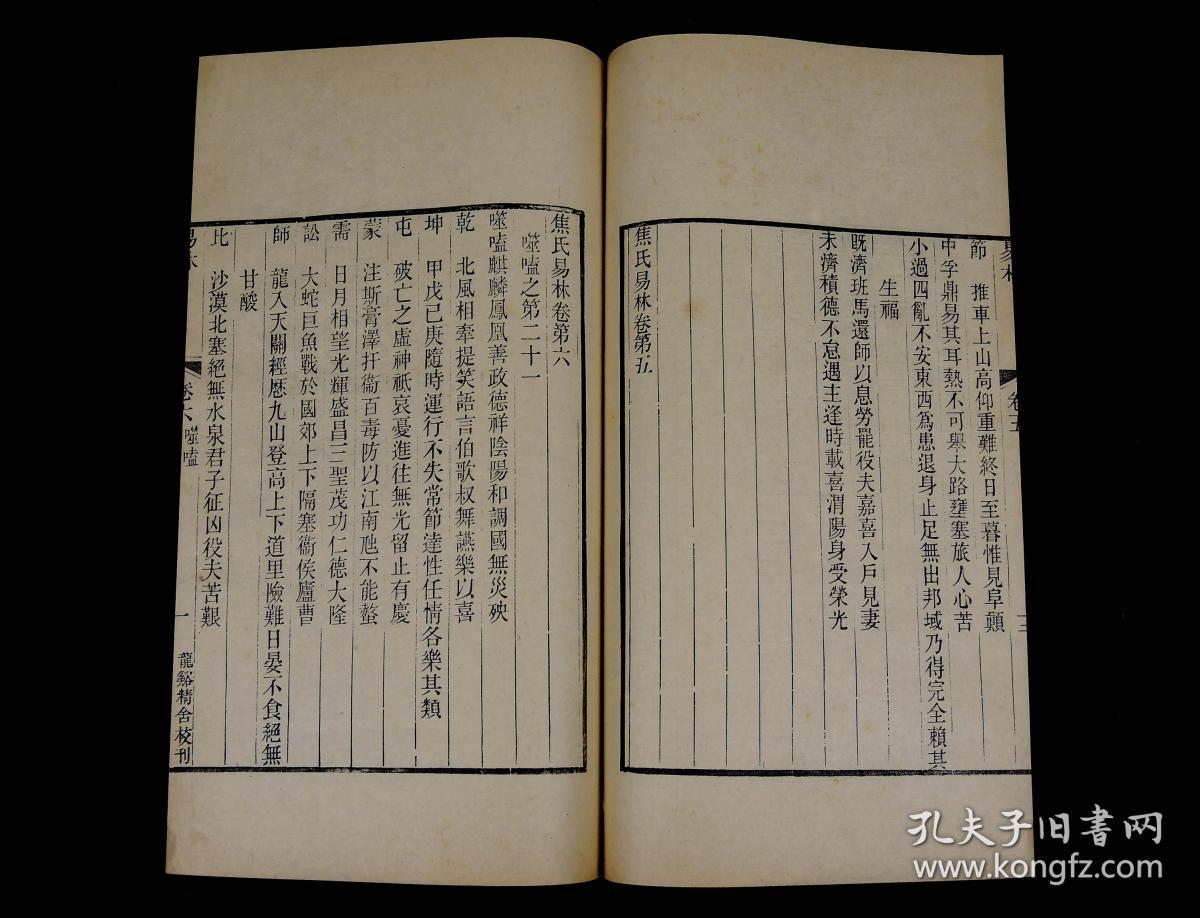 易林
卷五
節　推車上山高仰重難終日至暮惟見阜顛
中孚鼎易其耳熱不可舉大路壅塞旅人心苦
小過四亂不安東西為患退身止足無出邦域乃得完全賴其
生福
既濟班馬還師以息勞罷役夫嘉喜入戶見妻
未濟積德不怠遇主逢時載喜渭陽身受榮光
焦氏易林卷第五
焦氏易林卷第六
噬嗑之第二十一
噬嗑麒麟鳳凰善政德祥陰陽和調國無災殃
乾　北風相牽提笑語言伯歌叔舞讌樂以喜
坤　甲戊己庚隨時運行不失常節達性任情各樂其類
屯　破亡之虛神祇哀憂進往無光留止有慶
蒙　注斯膏澤扞衞百毒防以江南虺不能螫
需　日月相望光輝盛昌三聖茂功仁德大隆
訟　大蛇巨魚戰於國郊上下隔塞衞侯廬曹
師　龍入天關經歷九山登高上下道里險難日晏不食絕無
甘酸
比　沙漠北塞絕無水泉君子征凶役夫苦艱
易林
卷六　噬嗑
一
龍谿精舍校刊
孔夫子旧书网
www.kongfz.com